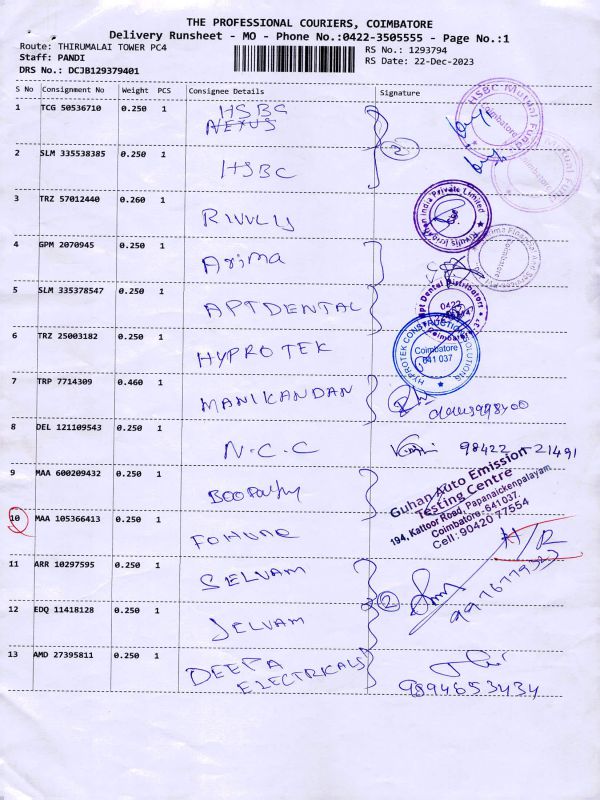 THE PROFESSIONAL COURIERS, COIMBATORE
Delivery Runsheet - MO - Phone No.:0422-3505555 - Page No.:1
Route: THIRUMALAI TOWER PC4
RS No.: 1293794
Staff: PANDI
RS Date: 22-Dec-2023
DRS No.: DCJB129379401
S No Consignment No Weight PCS Consignee Details Signature
1 TCG 50536710 0.250 1 HSBC
NEXUS
2 SLM 335538385 0.250 1 HSBC
2
HSBC Mutual Fund
Coimbatore
Mutual Fund
3 TRZ 57012440 0.260 1 RIVULIS
Rivulis Irrigation India Private Limited
4 GPM 2070945 0.250 1 Arima
Coimbatore
5 SLM 335378547 0.250 1 APT DENTAL
Apt Dental Distributors
0422
Coimbatore
6 TRZ 25003182 0.250 1 HYPROTEK
HYPROTEK CONSTRUCTION SOLUTIONS
Coimbatore
641 037
7 TRP 7714309 0.460 1 MANIKANDAN
8 DEL 121109543 0.250 1 N.C.C 98422-21491
9 MAA 600209432 0.250 1 Boopathy
Guhan Auto Emission
Testing Centre
194, Kattoor Road, Papanaickenpalayam
Coimbatore - 641 037.
Cell: 90420 77554
10 MAA 105366413 0.250 1 FORTUNE
11 ARR 10297595 0.250 1 SELVAM
2
12 EDQ 11418128 0.250 1 SELVAM
13 AMD 27395811 0.250 1 DEEPA
ELECTRICALS
9894653434